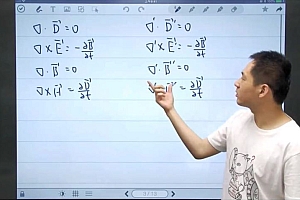 ∇·D⃗=0
∇×E⃗=-∂B⃗/∂t
∇·B⃗=0
∇×H⃗=∂D⃗/∂t
∇'·D⃗''=0
∇'×E⃗''=-∂B⃗''/∂t
∇'·B⃗''=0
=∂D⃗''/∂t